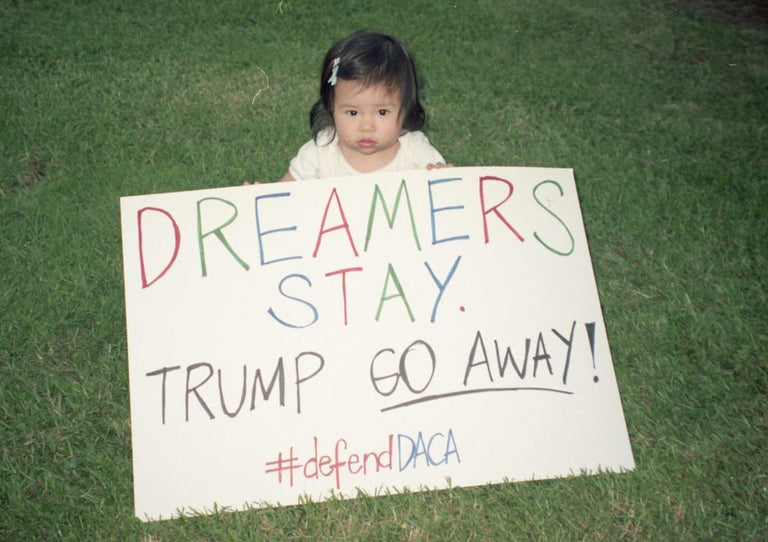 DREAMERS
STAY.
TRUMP GO AWAY!
#defendDACA